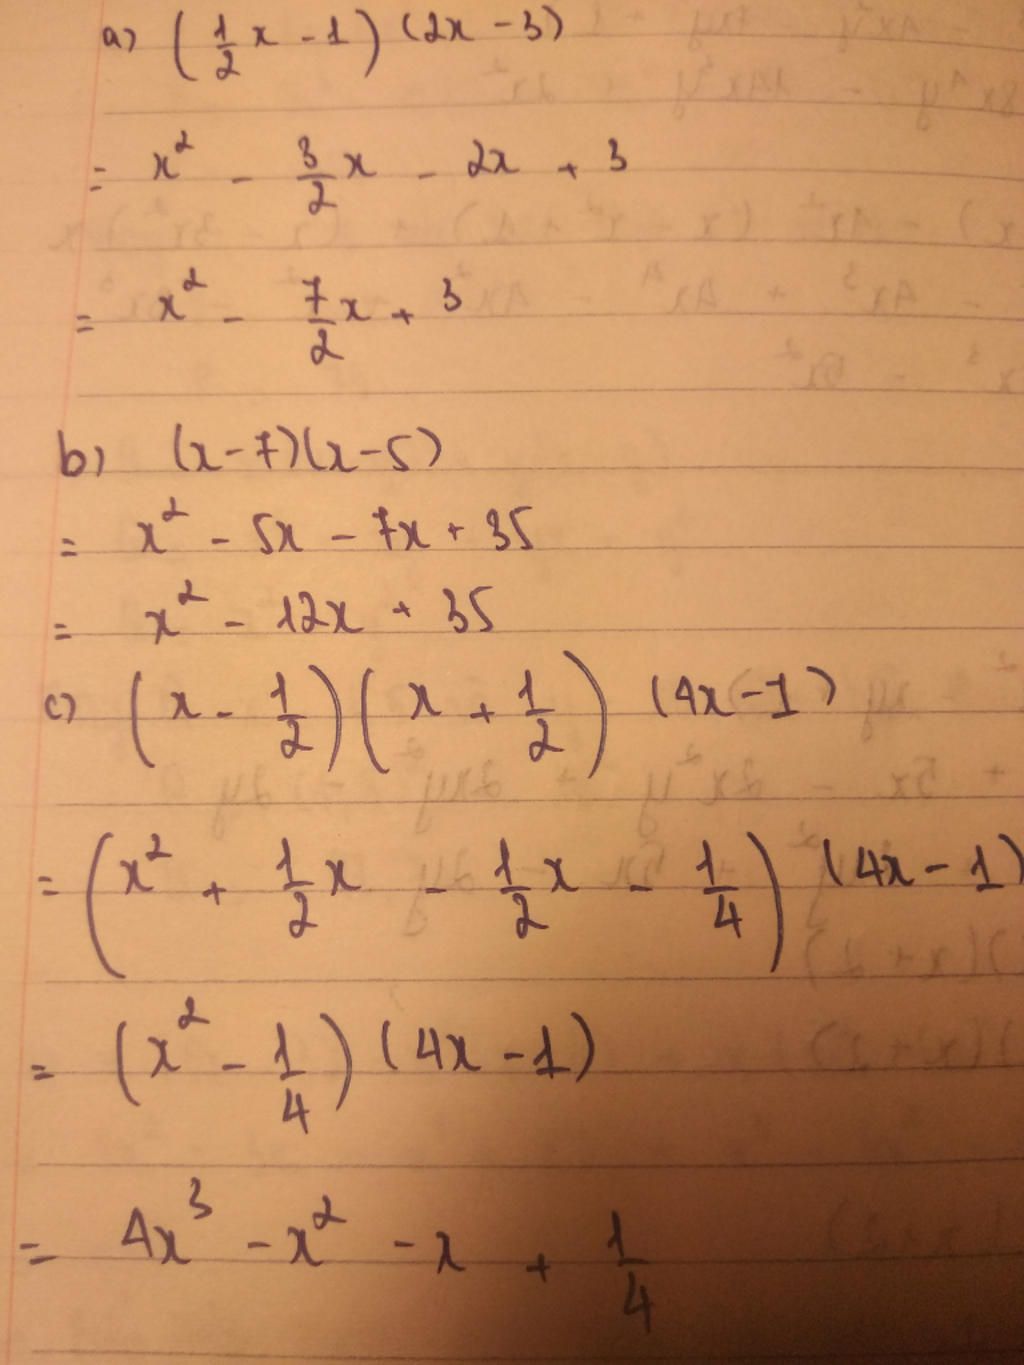 a) (1/2 x - 1) (2x - 3)
= x² - 3/2 x - 2x + 3
= x² - 7/2 x + 3
b) (x - 7)(x - 5)
= x² - 5x - 7x + 35
= x² - 12x + 35
c) (x - 1/2)(x + 1/2) (4x - 1)
= (x² + 1/2 x - 1/2 x - 1/4) (4x - 1)
= (x² - 1/4) (4x - 1)
= 4x³ - x² - x + 1/4